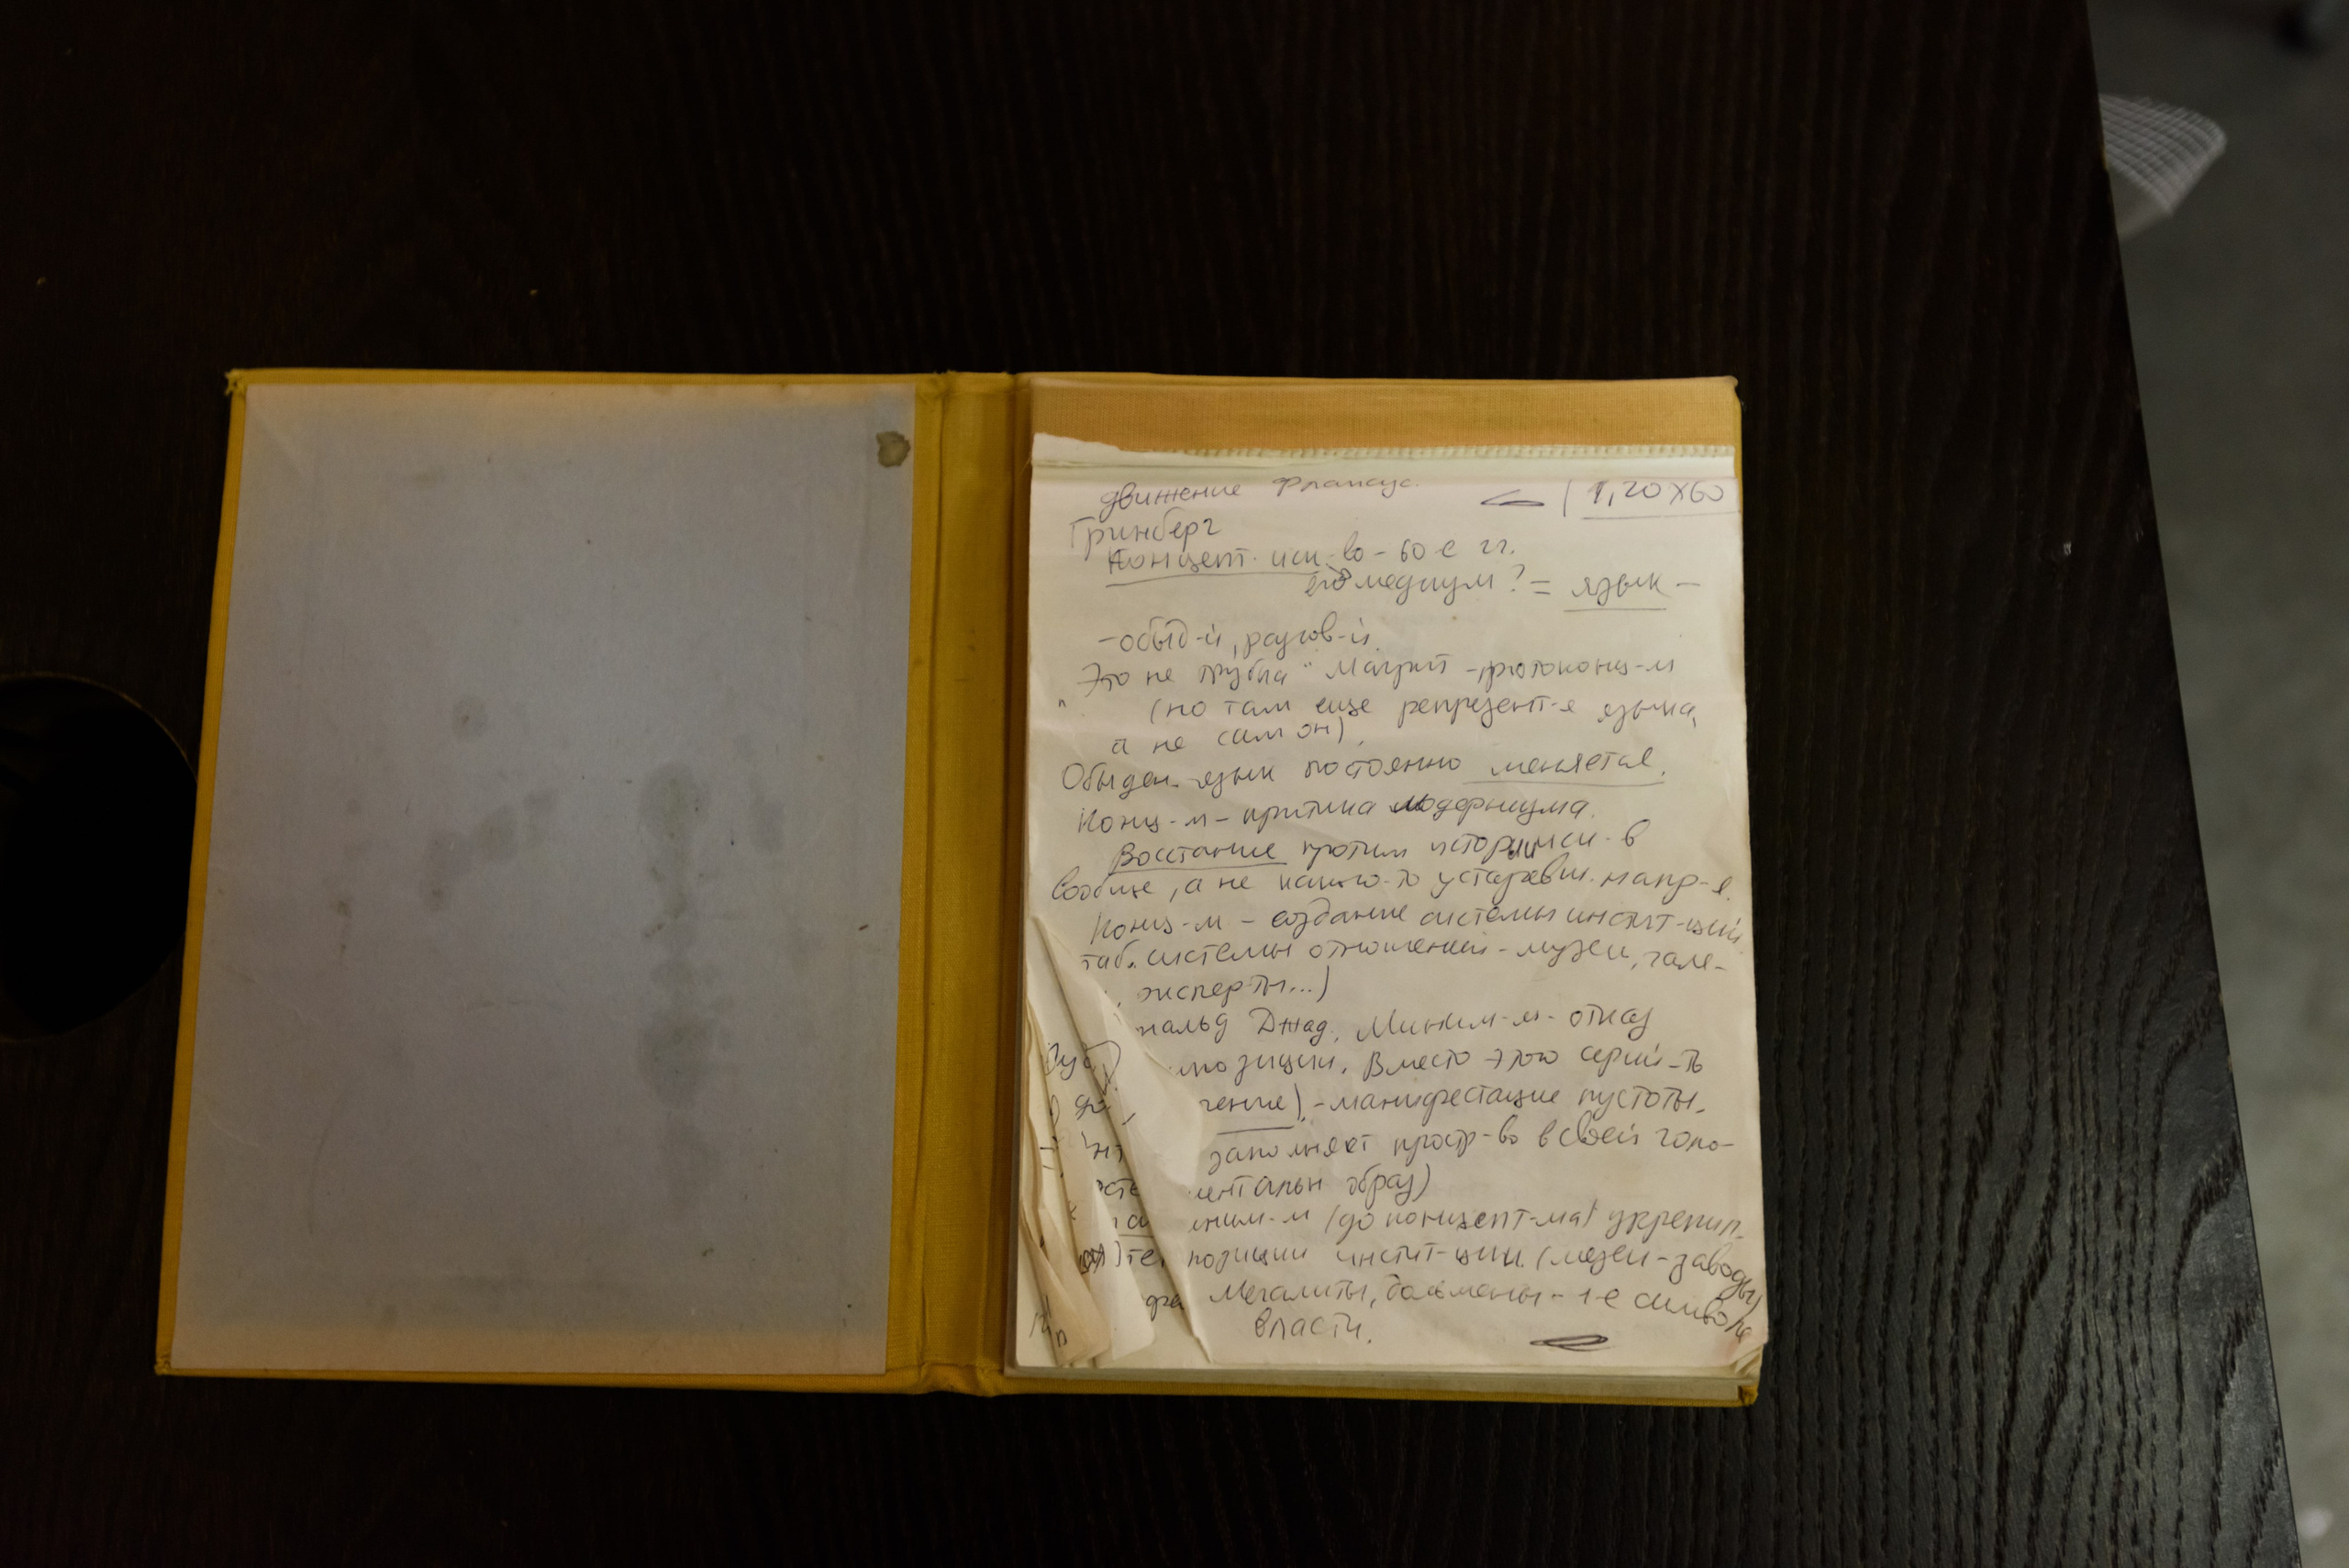 движение Флюксус.
(1,20х60
Гринберг
Концепт. иск-во - 60-е гг.
его медиум? = язык -
- обыд-й, разгов-й.
"Это не трубка" Магритт - протоконц-м
(но там еще репрезент-я языка,
а не сам он).
Обыден. язык постоянно меняется.
Конц-м - критика модернизма.
Восстание против истории иск-в
вообще, а не какого-то устаревш. напр-я.
Конц-м - создание системы инстит-ций
таб. системы отношений - музеи, гале-
, эксперты...)
нальд Джад. Миним-м - отказ
мпозиции. Вместо этого серий-ть
чение) - манифестация пустоты.
заполняет простр-во в своей
ментальн образ)
иним-м (до концепт-ма) укрепил
позиции инстит-ции. (музеи - заводы)
Мегалиты, дольмены - 1-е символы
власти.